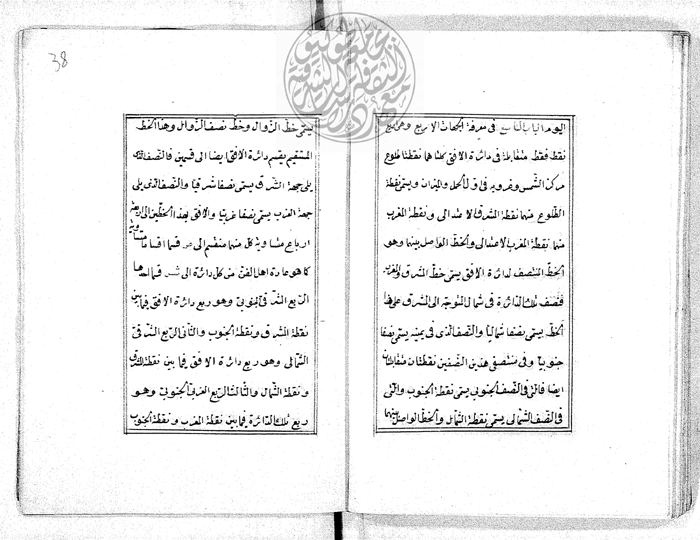 اليوم الباب التاسع في معرفة الجهات الاربع وهي اربع
نقط فقط متقابلة في دائرة الافق كلتاهما نقطتا طلوع
مركز الشمس وغروبه في اول الحمل والميزان ويسمى نقطة
الطلوع منهما نقطة المشرق الاعتدالى ونقطة المغرب
منها نقطة المغرب الاعتدالى والخط الفاصل بينهما وهو
الخط المنصف لدائرة الافق يسمى خط المشرق والمغرب
فنصف تلك الدائرة في شمال المتوجه الى المشرق على هذا
الخط يسمى نصفا شماليا والنصف الذى في يمينه يسمى نصفا
جنوبيا وفي منتصفى هذين النصفين نقطتان متقابلتان
ايضا فالتى في النصف الجنوبى يسمى نقطة الجنوب والتى
في النصف الشمالى يسمى نقطة الشمال والخط الواصل بينهما
38
يسمى خط الزوال وخط نصف الزوال وهذا الخط
المستقيم يقسم دائرة الافق ايضا الى قسمين فالنصف الذى
يلى جهة الشرق يسمى نصفا شرقيا والنصف الذى يلى
جهة الغرب يسمى نصفا غربيا والافق بهذا الخطين الى اربعة
ارباع متساوية كل منها منقسم الى ص قسما اقساما متساوية
كما هو عادة اهل الفن من كل دائرة الى شس قسما احدها
الربع الشرقى الجنوبى وهو ربع دائرة الافق فيما بين
نقطة المشرق ونقطة الجنوب والثانى الربع الشرقى
الشمالى وهو ربع دائرة الافق فيما بين نقطة المشرق
ونقطة الشمال والثالث الربع الغربى الجنوبى وهو
ربع تلك الدائرة فيما بين نقطة المغرب ونقطة الجنوب